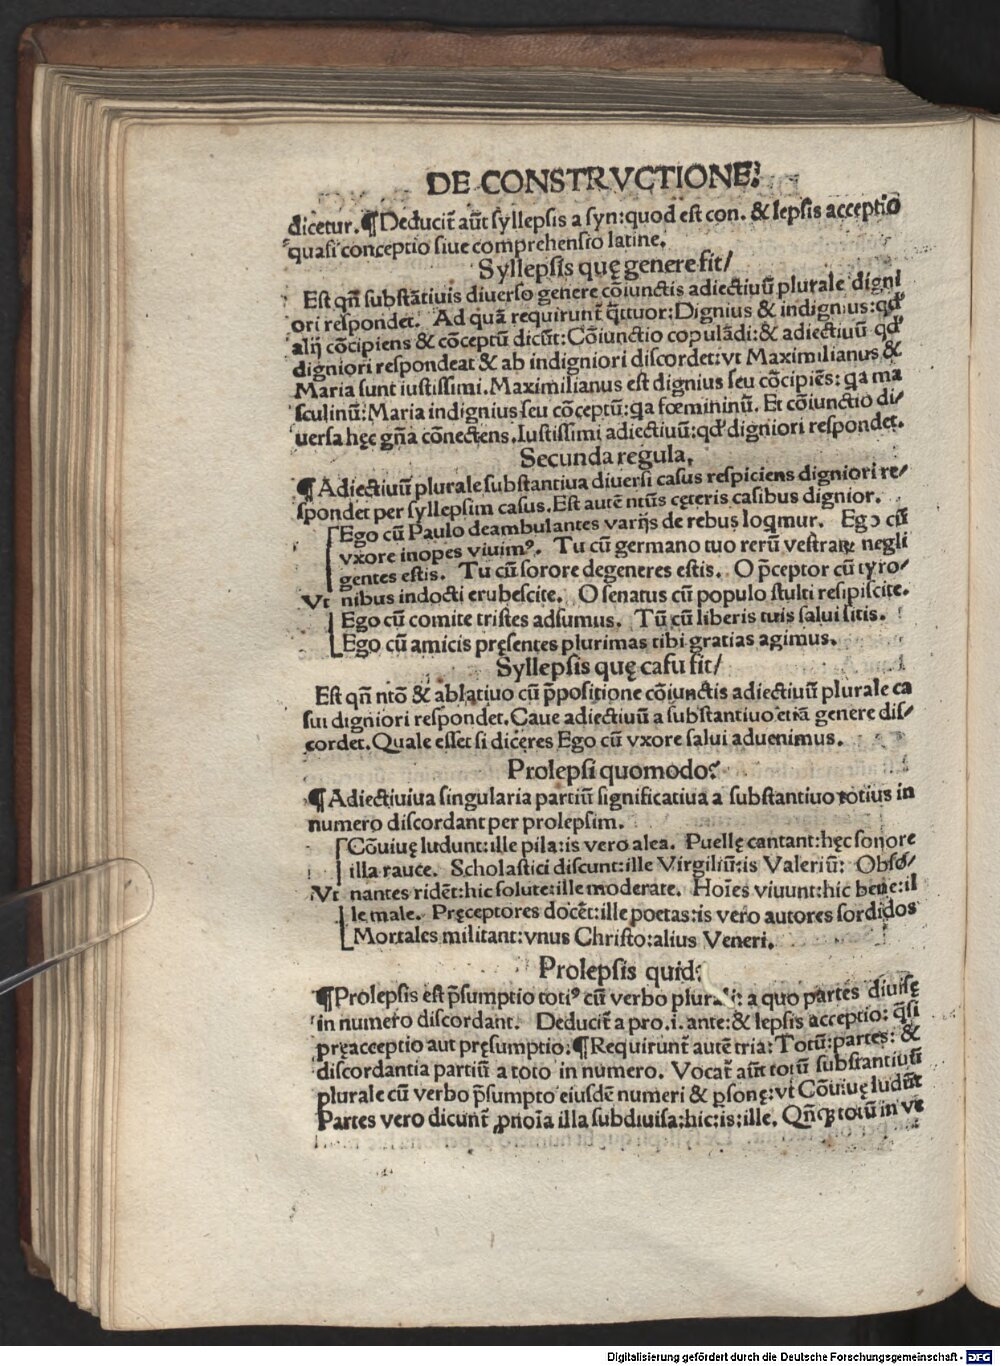 DE CONSTRVCTIONE.
dicetur.¶Deducit̃ aũt syllepsis a syn:quod est con. & lepsis acceptio
quasi conceptio siue comprehensio latine.
Syllepsis quę genere fit/
Est qñ substãtiuis diuerso genere cõiunctis adiectiuũ plurale digni
ori respondet. Ad quã requirunt̃ q̃ttuor:Dignius & indignius:qđ
alij cõcipiens & cõceptũ dicũt:Cõiunctio copulãdi:& adiectiuũ qđ
digniori respondeat & ab indigniori discordet:vt Maximilianus &
Maria sunt iustissimi.Maximilianus est dignius seu cõcipiẽs: qa ma
sculinũ:Maria indignius seu cõceptũ:qa fœmininũ. Et cõiunctio di/
uersa hęc gña cõnectens.Iustissimi adiectiuũ:qđ digniori respondet.
Secunda regula.
¶Adiectiuũ plurale substantiua diuersi casus respiciens digniori re/
spondet per syllepsim casus.Est autẽ ntũs cęteris casibus dignior.
Ego cũ Paulo deambulantes varijs de rebus loqmur. Ego cũ
vxore inopes viuimꝰ. Tu cũ germano tuo rerũ vestraꝝ negli
gentes estis. Tu cũ sorore degeneres estis. O p̃ceptor cũ tyro/
Vt nibus indocti erubescite. O senatus cũ populo stulti resipiscite.
Ego cũ comite tristes adsumus. Tũ cũ liberis tuis salui sitis.
Ego cũ amicis pręsentes plurimas tibi gratias agimus.
Syllepsis quę casu fit/
Est qñ ntõ & ablatiuo cũ p̃positione cõiunctis adiectiuũ plurale ca
sui digniori respondet.Caue adiectiuũ a substantiuo etiã genere dis/
cordet.Quale esset si diceres Ego cũ vxore salui aduenimus.
Prolepsi quomodo?
¶Adiectiuiua singularia partiũ significatiua a substantiuo totius in
numero discordant per prolepsim.
Cõuiuę ludunt:ille pila:is vero alea. Puellę cantant:hęc sonore
illa rauce. Scholastici discunt:ille Virgiliũ:is Valeriũ: Obso/
Vt nantes ridẽt:hic solute:ille moderate. Hoĩes viuunt:hic bene:il
le male. Pręceptores docẽt:ille poetas:is vero autores sordidos
Mortales militant:vnus Christo:alius Veneri.
Prolepsis quid:
¶Prolepsis est p̃sumptio totiꝰ cũ verbo plurali: a quo partes diuisę
in numero discordant. Deducit̃ a pro.i.ante:& lepsis acceptio: q̃si
pręacceptio aut pręsumptio:¶Requirunt̃ autẽ tria:Totũ:partes: &
discordantia partiũ a toto in numero. Vocat̃ aũt totũ substantiuũ
plurale cũ verbo p̃sumpto eiusdẽ numeri & ꝑsonę:vt Cõuiuę ludũt
Partes vero dicunt̃ ꝓnoĩa illa subdiuisa:hic:is:ille. Qñqꝫ totũ in vt
Digitalisierung gefördert durch die Deutsche Forschungsgemeinschaft - DFG